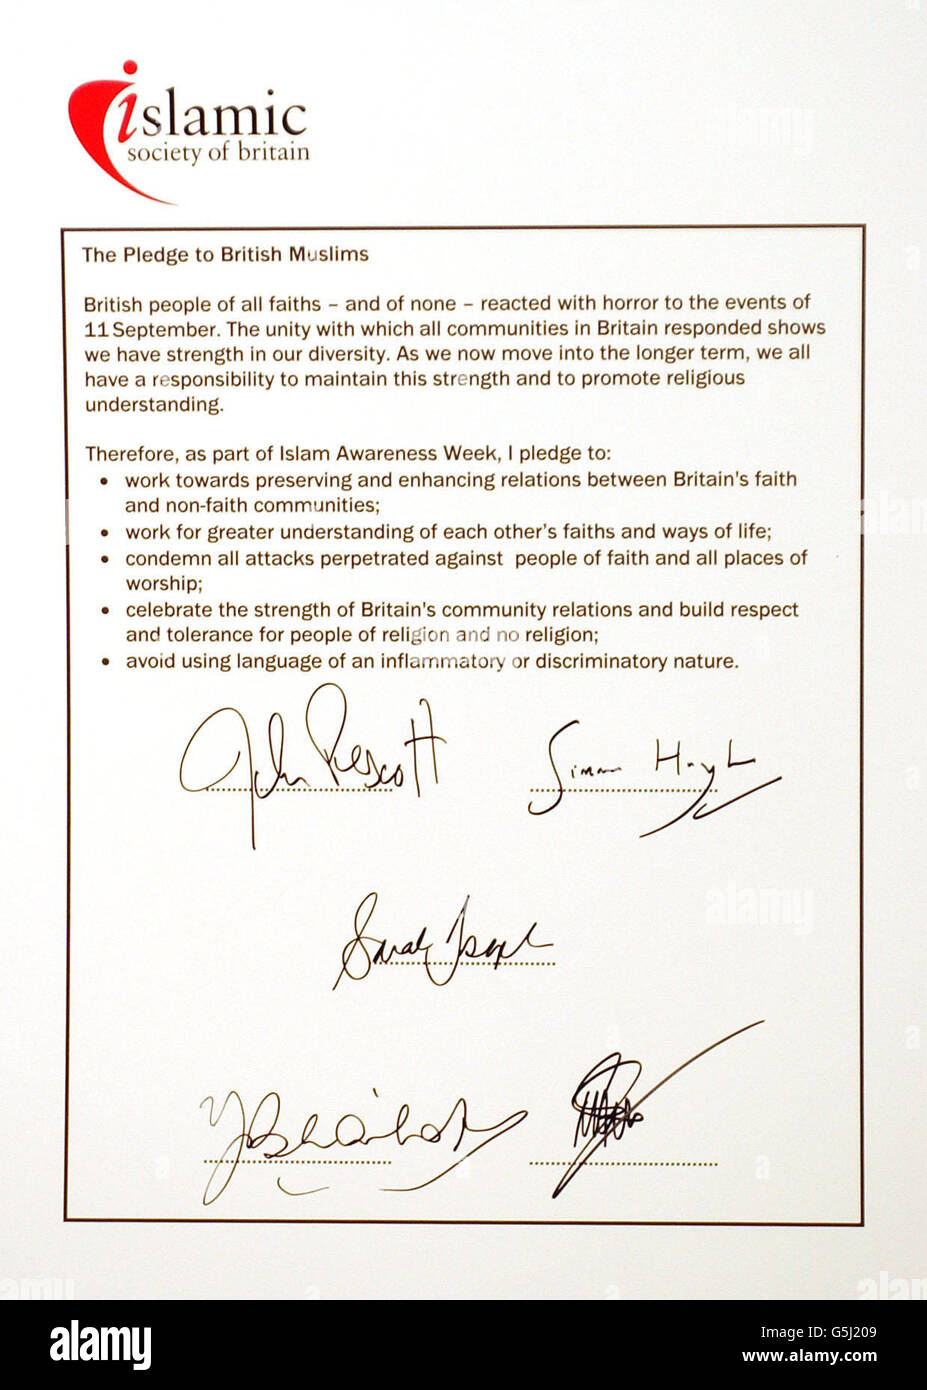 islamic
society of britain
The Pledge to British Muslims
British people of all faiths – and of none – reacted with horror to the events of
11 September. The unity with which all communities in Britain responded shows
we have strength in our diversity. As we now move into the longer term, we all
have a responsibility to maintain this strength and to promote religious
understanding.
Therefore, as part of Islam Awareness Week, I pledge to:
• work towards preserving and enhancing relations between Britain's faith
and non-faith communities;
• work for greater understanding of each other's faiths and ways of life;
• condemn all attacks perpetrated against people of faith and all places of
worship;
• celebrate the strength of Britain's community relations and build respect
and tolerance for people of religion and no religion;
• avoid using language of an inflammatory or discriminatory nature.
John Prescott
Simon Hugh
Sarah Joseph
alamy
alamy
Image ID: G5J209
www.alamy.com